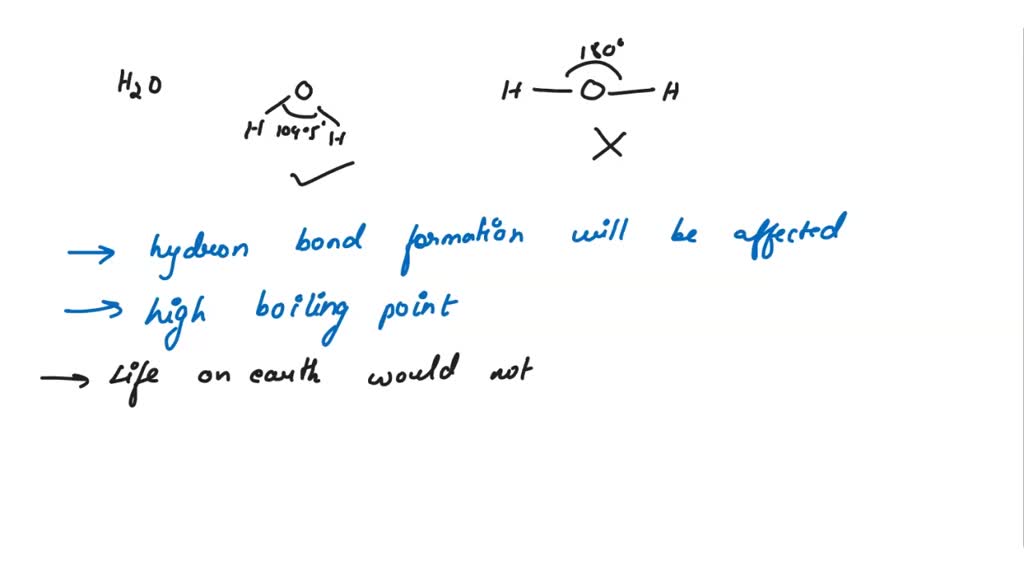 180°
H₂O
O
H — O — H
H 104.5° H
→ hydron bond formation will be affected
→ high boiling point
→ Life on earth would not